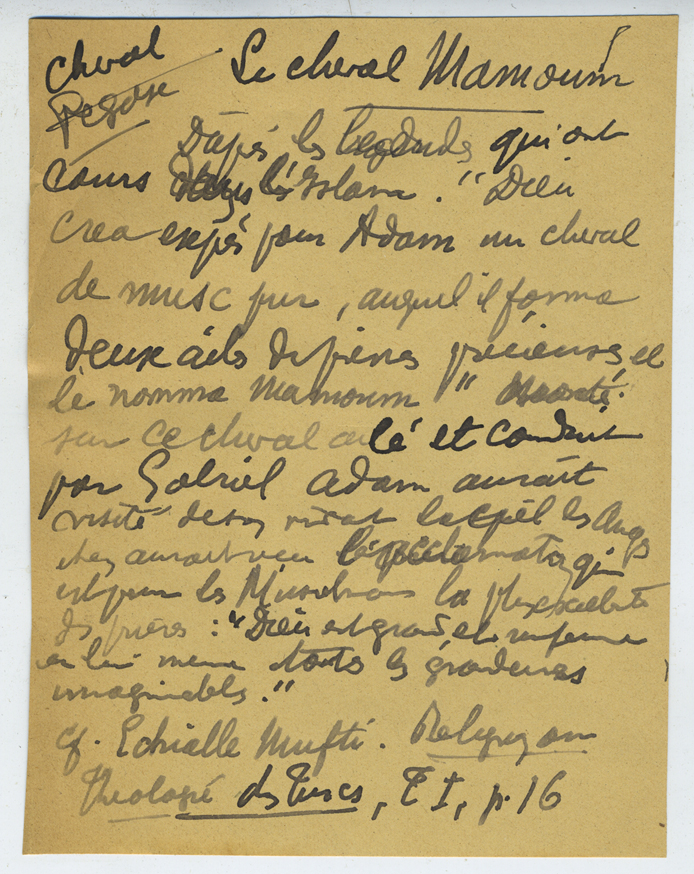 cheval
Pegase
Le cheval Mamoum
D'apés les legendes qui ont
cours dans l'Islam. "Dieu
crea exprés pour Adam un cheval
de musc pur, auquel il forma
deux ails de pierres précieuses et
le nomma Mamoum" Monté
sur ce cheval ailé et conduit
par Gabriel Adam aurait
visité de son vivant le ciel les Anges
et y aurait reçu qui
est pour les Musulmans la plus excellente
des prières : "Dieu est grand et renferme
en lui meme toutes les grandeurs
imaginables."
cf. Echialle Mufti. Religion
Theologie des Turcs, T I, p. 16